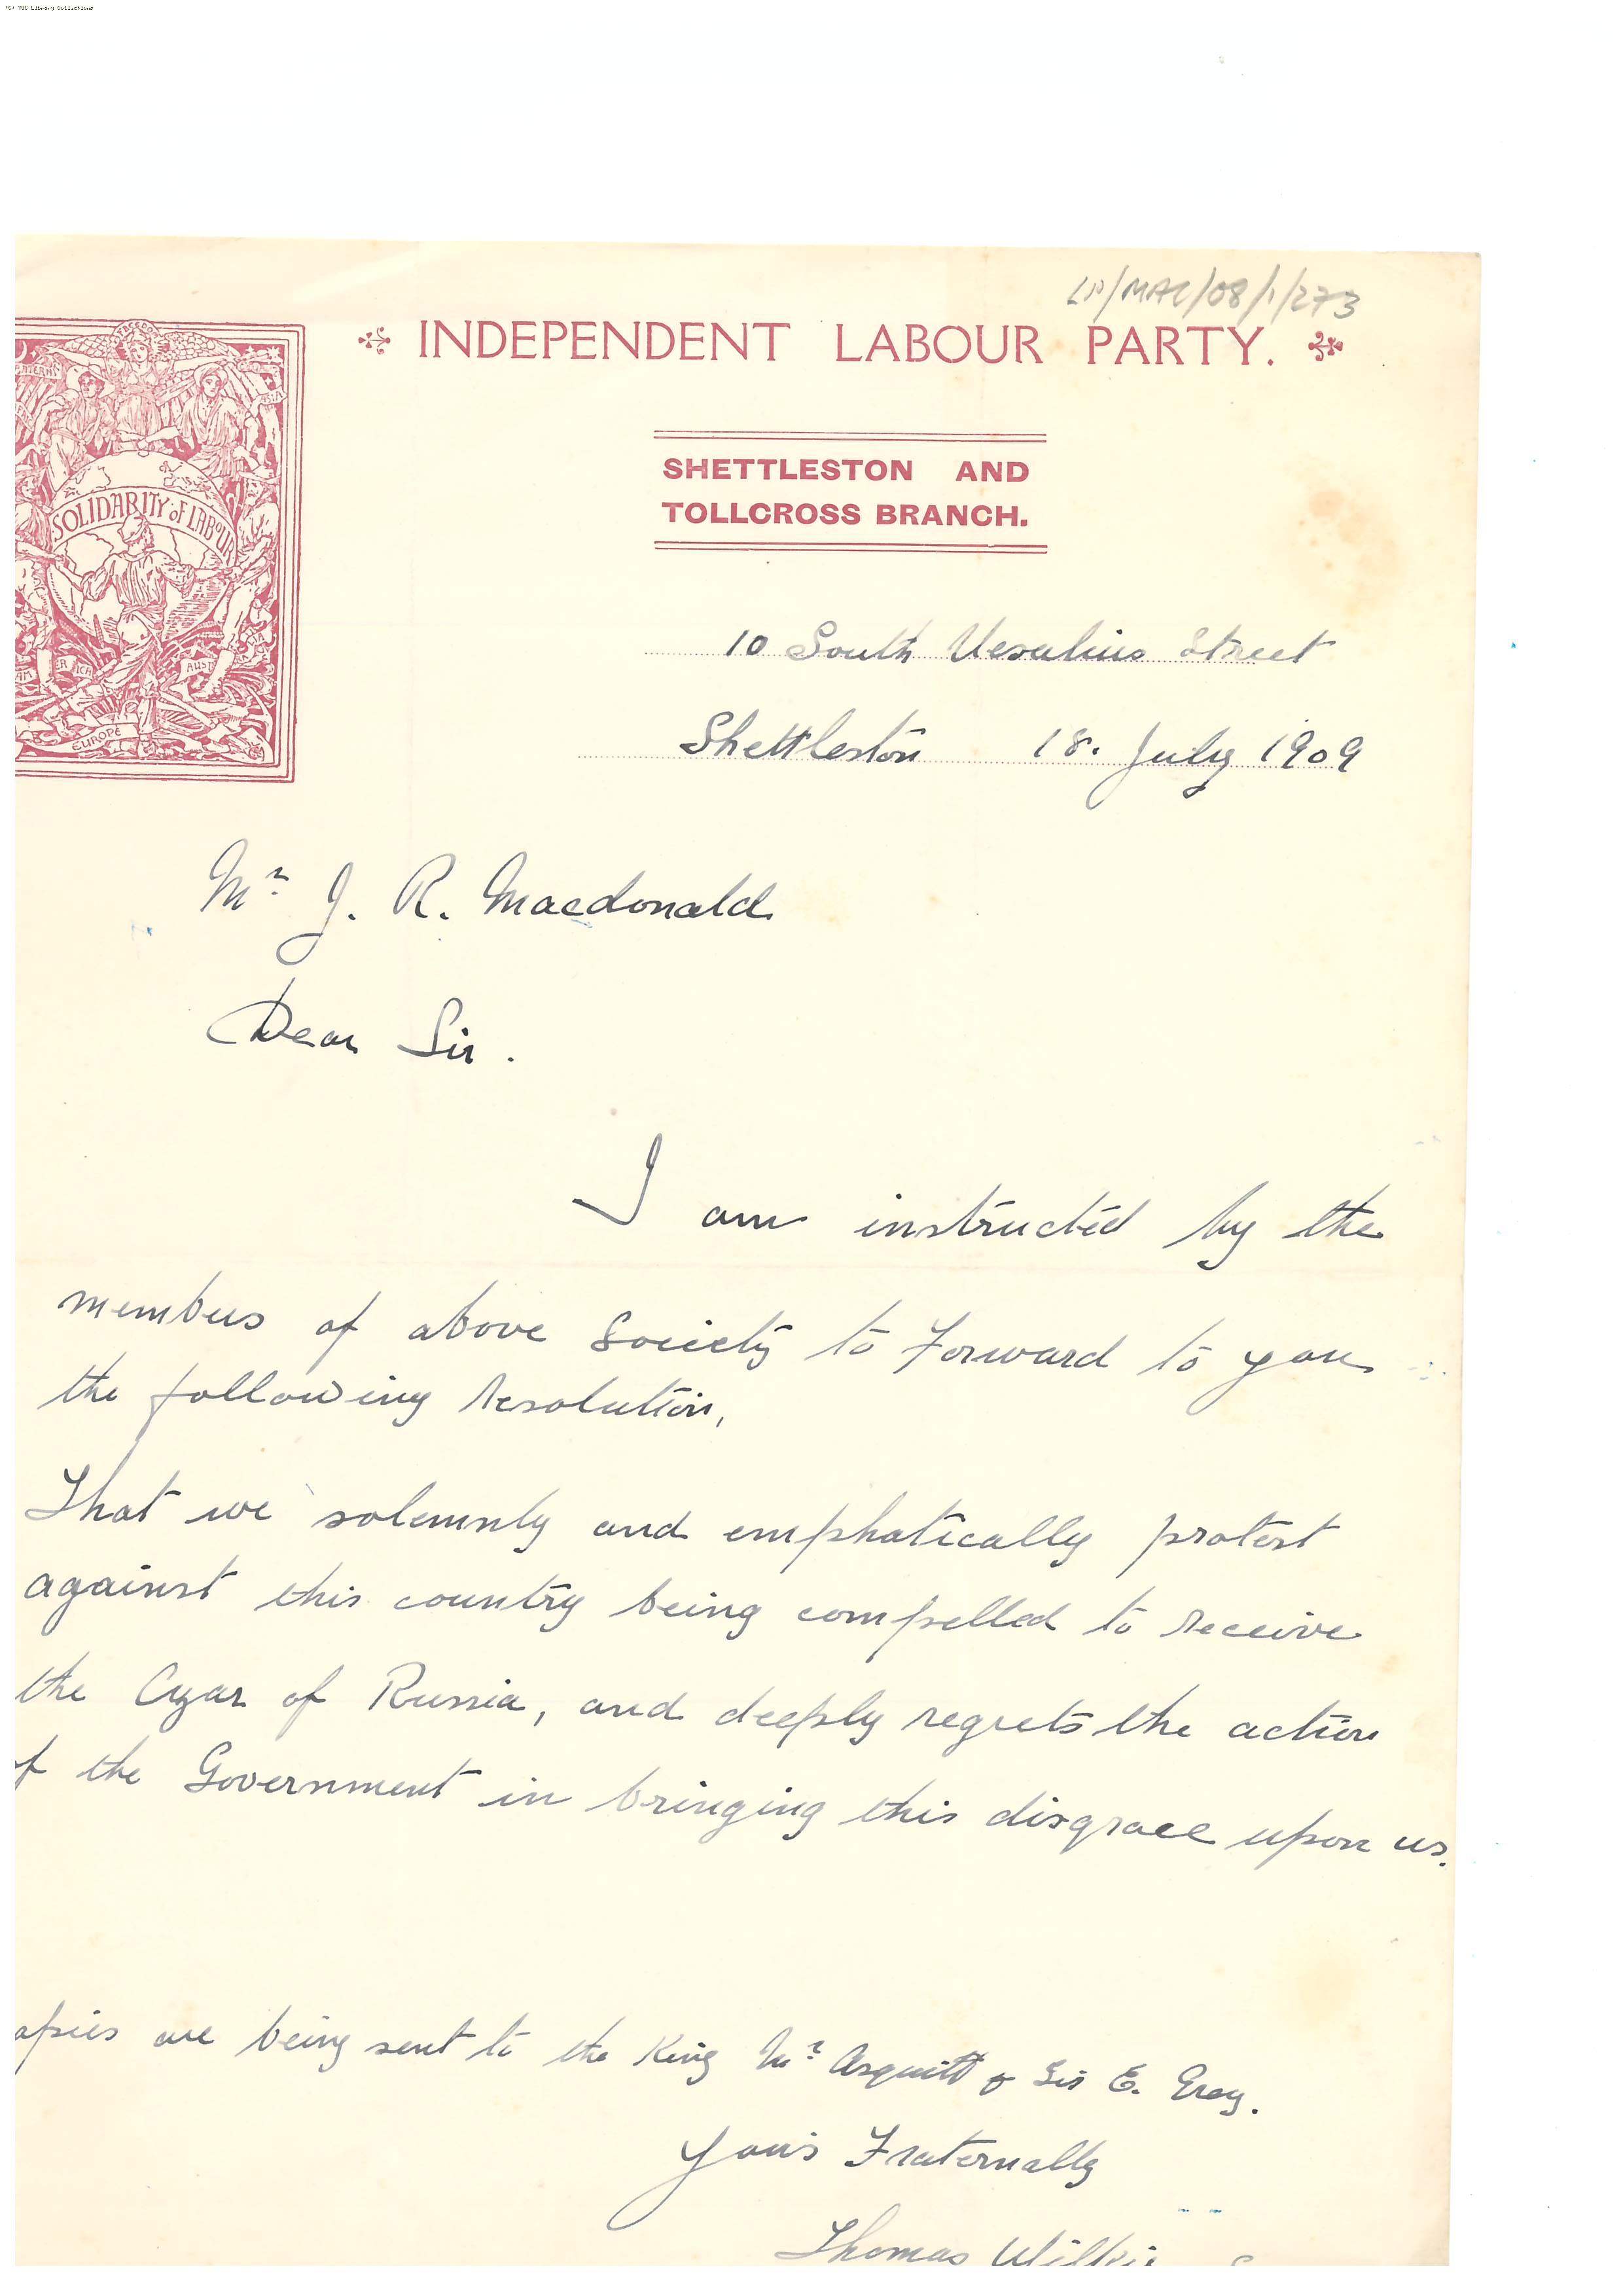 (C) TUC Library Collections
LP/MAC/08/1/273
INDEPENDENT LABOUR PARTY.
FREEDOM
SOLIDARITY of LABOUR
EUROPE
SHETTLESTON AND
TOLLCROSS BRANCH.
10 South Vesalius Street
Shettleston 18. July 1909
Mr J. R. Macdonald
Dear Sir.
I am instructed by the
members of above Society to Forward to you
the following resolution,
That we solemnly and emphatically protest
against this country being compelled to receive
the Czar of Russia, and deeply regrets the action
f the Government in bringing this disgrace upon us.
opies are being sent to the King Mr Asquith & Sir E. Grey.
Yours Fraternally
Thomas